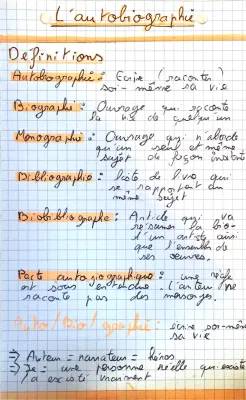 L'autobiographie
Définitions
Autobiographie : Ecrire (raconter)
soi-même sa vie
Biographie : Ouvrage qui raconte
la vie de quelqu'un
Monographie : Ouvrage qui n'aborde
qu'un seul et même
sujet de façon
Bibliographie : liste de livre qui
se rapportent au
même sujet
Biobibliographe : Article qui va
résumer la bio-
d'un artiste ainsi
que l'ensemble de
ses oeuvres.
Pacte autogiographique : une règle
est sous entendue. L'auteur ne
raconte pas des mensonges.
Auto/Bio/graphie : écrire soi-même
sa vie
=> Auteur = narrateur = héros
=> Je = une personne réelle qui existe
/a existé vraiment